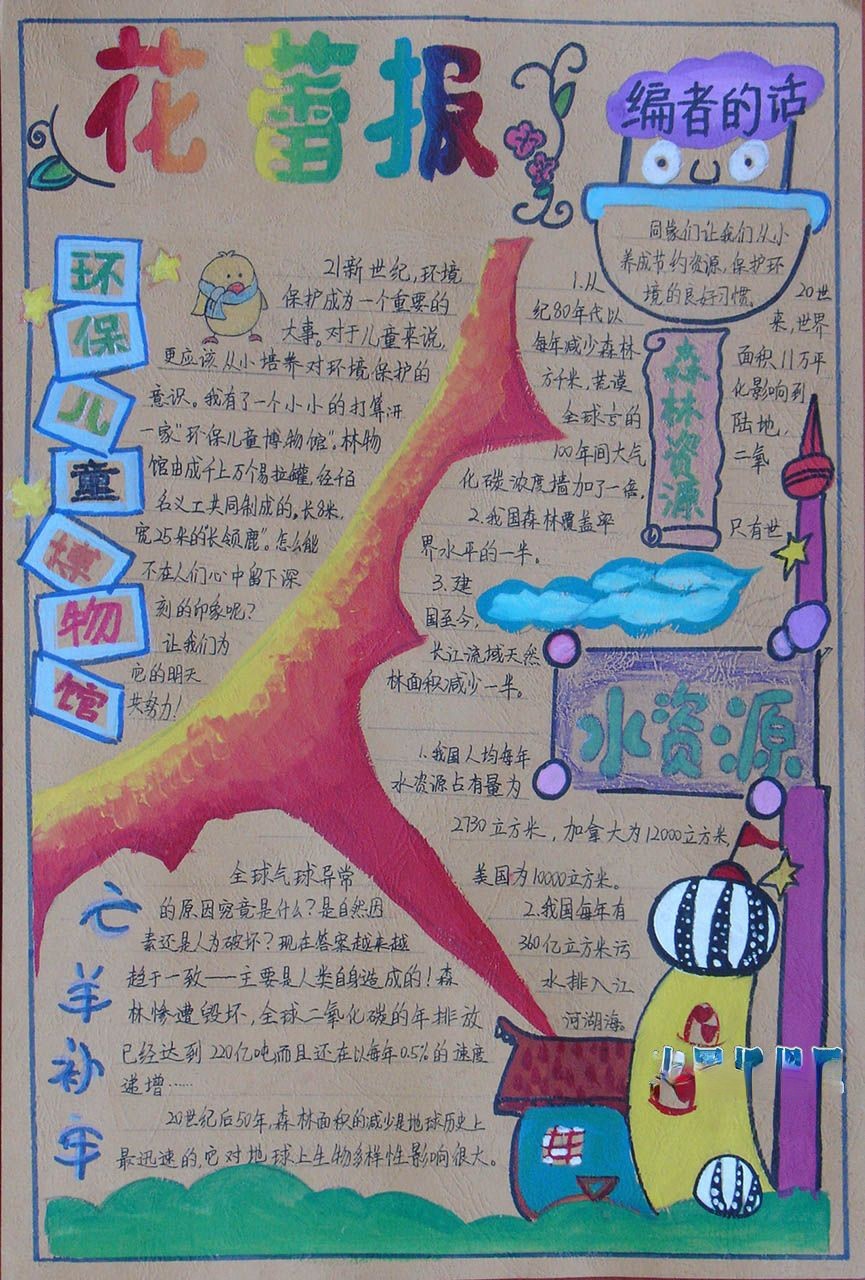 花蕾报
编者的话
同学们让我们从小
养成节约资源,保护环
境的良好习惯。
环保儿童博物馆
21新世纪,环境
保护成为一个重要的
大事。对于儿童来说,
更应该从小培养对环境保护的
意识。我有了一个小小的打算开
一家"环保儿童博物馆"。林物
馆由成千上万个易拉罐,经佰
名义工共同制成的。长8米,
宽25米的"长颈鹿"。怎么能
不在人们心中留下深
刻的印象呢?
让我们为
它的明天
共努力!
森林资源
1.从 20世
纪80年代以 来,世界
每年减少森林 面积11万平
方千米,荒漠 化影响到
全球亏的 陆地,
100年间大气 二氧
化碳浓度墙加了一倍,
2.我国森林覆盖率 只有世
界水平的一半。
3.建
国至今,
长江流域天然
林面积减少一半。
水资源
1.我国人均每年
水资源占有量为
2730立方米,加拿大为12000立方米,
美国为10000立方米。
2.我国每年有
360亿立方米污
水排入江
河湖海。
亡羊补牢
全球气球异常
的原因究竟是什么?是自然因
素还是人为破坏?现在答案越来越
趋于一致——主要是人类自身造成的!森
林惨遭毁坏,全球二氧化碳的年排放
已经达到220亿吨,而且还在以每年0.5%的速度
递增……
20世纪后50年,森林面积的减少是地球历史上
最迅速的,它对地球上生物多样性影响很大。